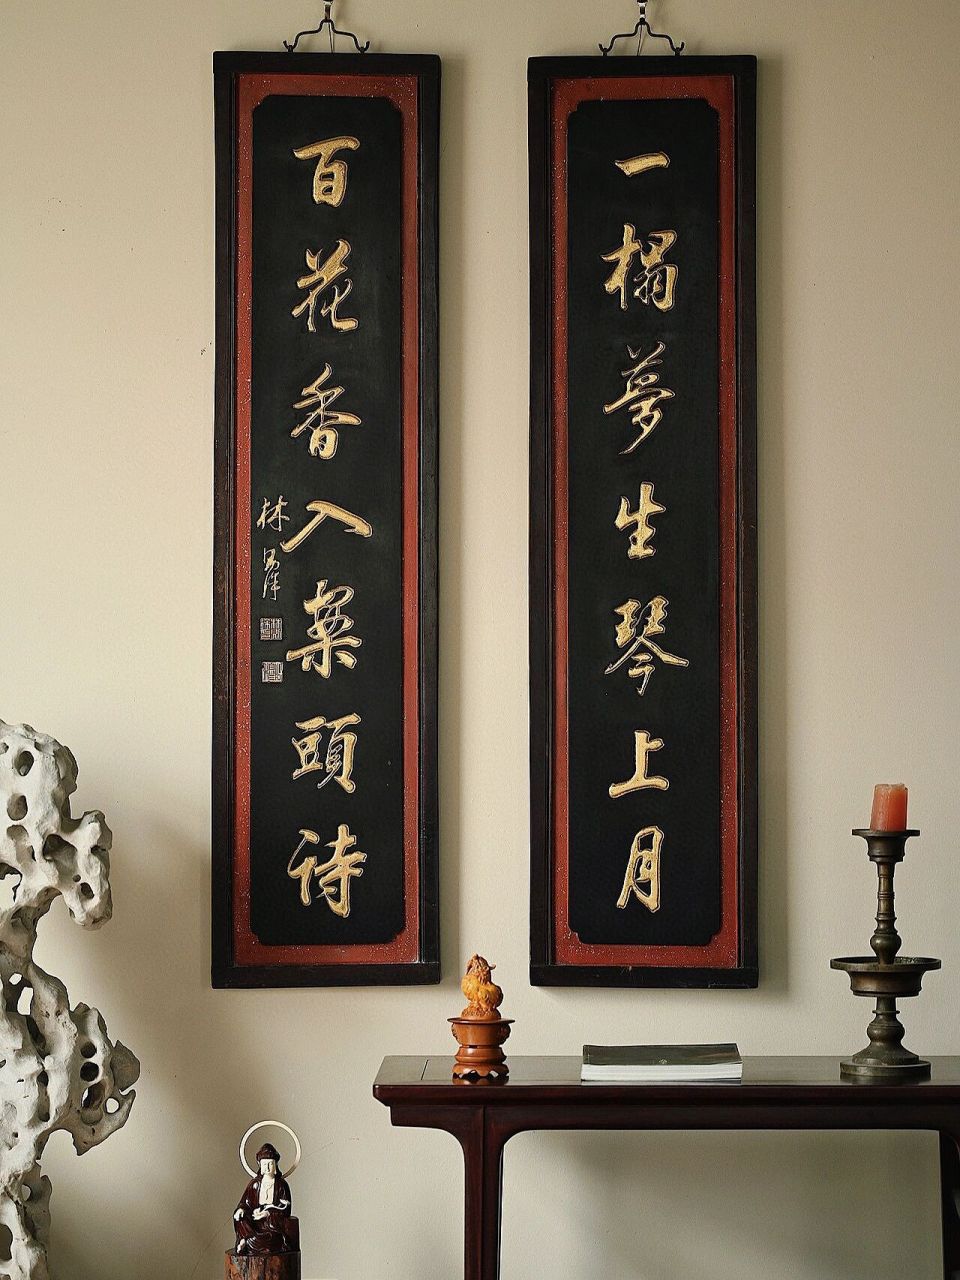 一榻夢生琴上月
百花香入案頭詩
林